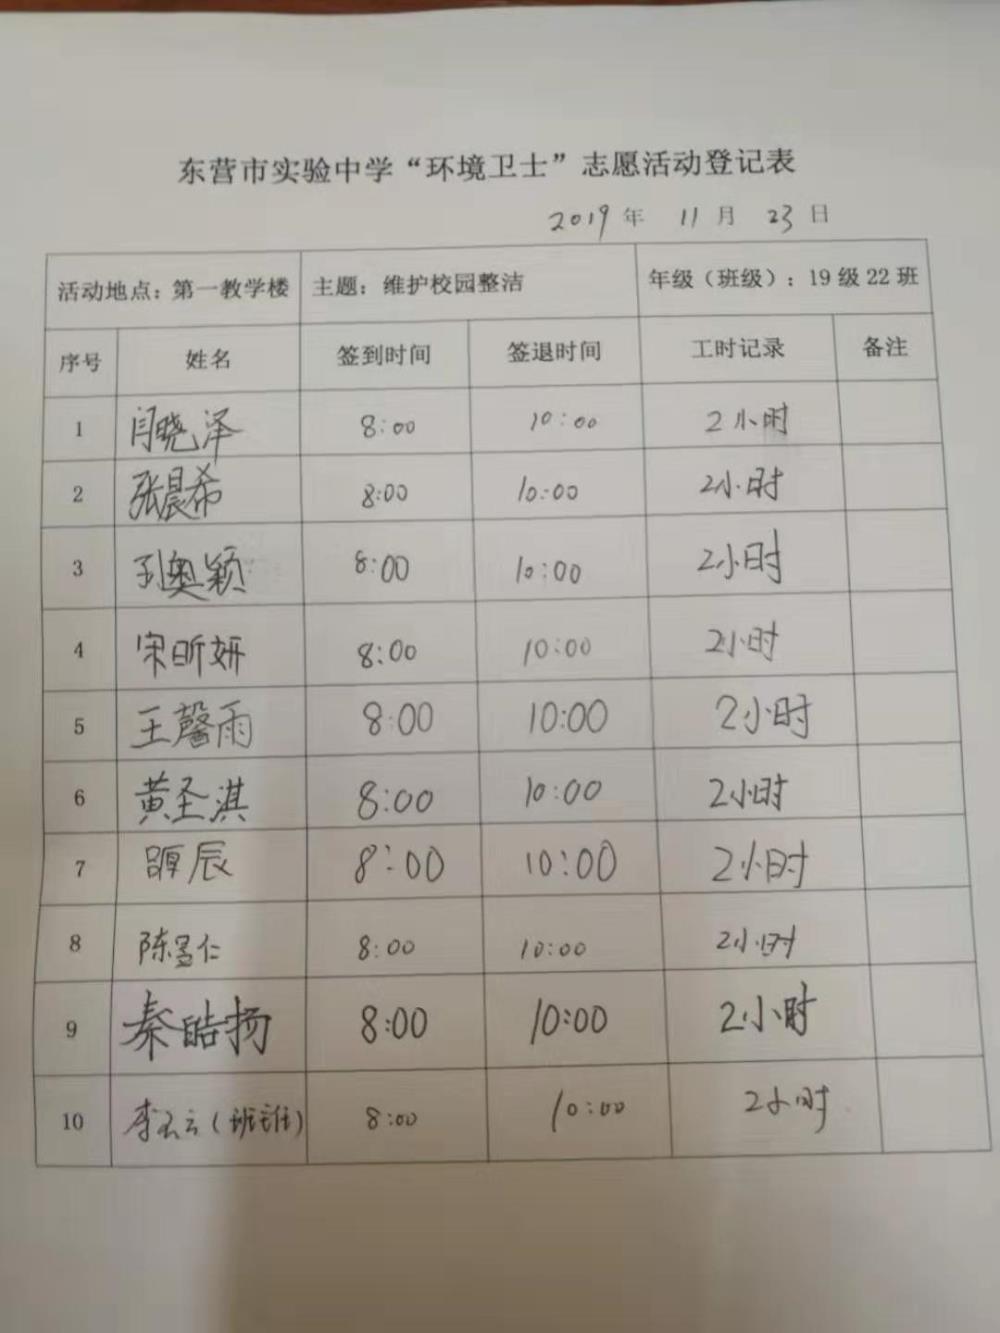 东营市实验中学“环境卫士”志愿活动登记表
2019年 11月 23日
活动地点：第一教学楼 主题：维护校园整洁 年级（班级）：19级22班
序号 姓名 签到时间 签退时间 工时记录 备注
1 闫晓泽 8:00 10:00 2小时
2 张晨希 8:00 10:00 2小时
3 孙奥颖 8:00 10:00 2小时
4 宋昕妍 8:00 10:00 2小时
5 王馨雨 8:00 10:00 2小时
6 黄圣淇 8:00 10:00 2小时
7 8:00 10:00 2小时
8 陈昱仁 8:00 10:00 2小时
9 秦皓扬 8:00 10:00 2小时
10 李玉云（班主任） 8:00 10:00 2小时